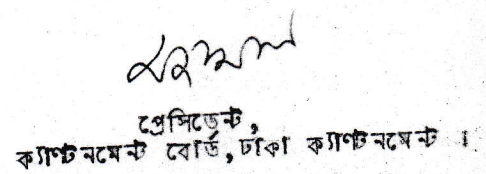 প্রেসিডেন্ট,
ক্যাণ্টনমেন্ট বোর্ড, ঢাকা ক্যাণ্টনমেন্ট ।